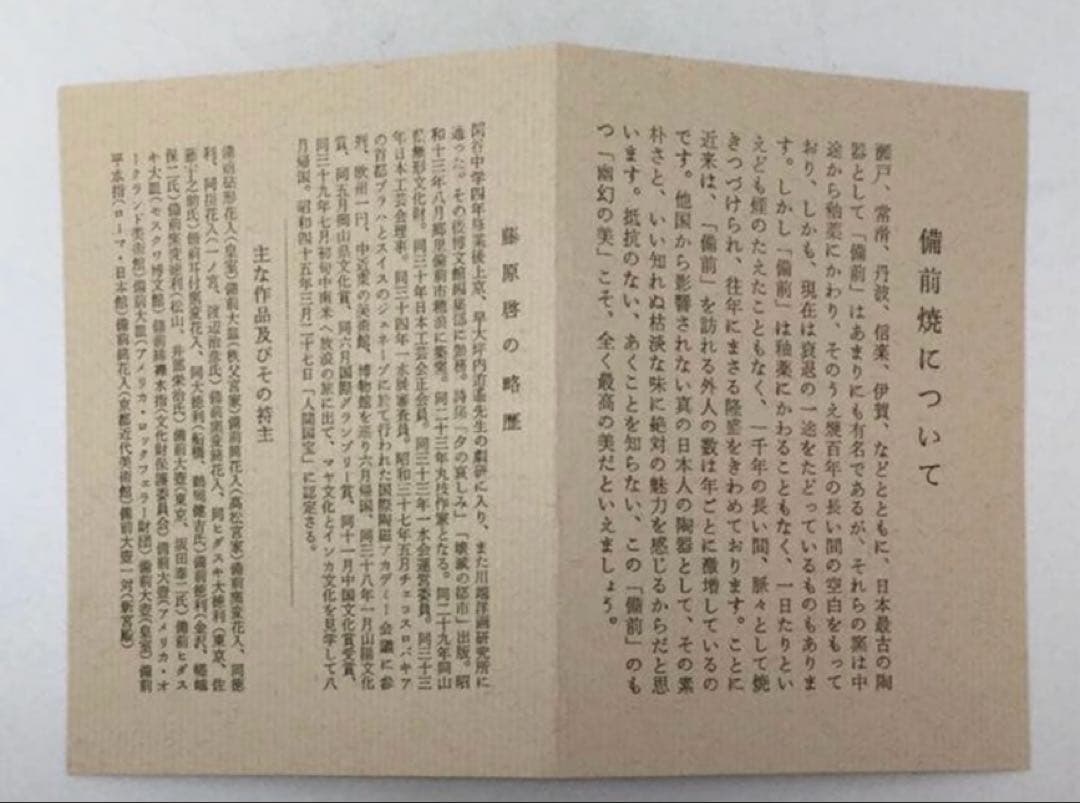 備前焼について
瀬戸、常滑、丹波、信楽、伊賀、などとともに、日本最古の陶
器として「備前」はあまりにも有名であるが、それらの窯は中
途から釉薬にかわり、そのうえ幾百年の長い間の空白をもって
おり、しかも、現在は衰退の一途をたどっているものもありま
す。しかし「備前」は釉薬にかわることもなく、一日たりとい
えども煙のたえたこともなく、一千年の長い間、脈々として焼
きつづけられ、往年にまさる隆盛をきわめております。ことに
近来は、「備前」を訪れる外人の数は年ごとに激増しているの
です。他国から影響されない真の日本人の陶器として、その素
朴さと、いい知れぬ枯淡な味に絶対の魅力を感じるからだと思
います。抵抗のない、あくことを知らない、この「備前」のも
つ「幽幻の美」こそ、全く最高の美だといえましょう。
藤原啓の略歴
閑谷中学四年修業後上京、早大坪内逍遙先生の劇研に入り、また川端洋画研究所に
通った。その後博文館編集部に勤務。詩集「夕の哀しみ」「壊滅の都市」出版。昭
和十三年八月郷里備前市穂浪に築窯。同二十三年丸技作家となる。同二十九年岡山
県無形文化財。同三十年日本工芸会正会員。同三十三年一水会運営委員。同三十三
年日本工芸会理事。同三十四年一水展審査員。昭和三十七年五月チェコスロバキヤ
の首都プラハとスイスのジェネーブに於て行われた国際陶磁アカデミー会議に参
列、欧州一円、中近東の美術館、博物館を巡り六月帰国、同三十八年一月山陽文化
賞、同五月岡山県文化賞、同六月国際グランプリー賞、同十一月中国文化賞受賞、
同三十九年七月初旬中南米へ放浪の旅に出て、マヤ文化とインカ文化を見学して八
月帰国。昭和四十五年三月二十七日「人間国宝」に認定さる。
主な作品及びその持主
備前砧形花入（皇室）備前大皿（秩父宮家）備前餅花入（高松宮家）備前窯変花入、同徳
利、同掛花入（一ノ宮、渡辺治彦氏）備前窯変餅花入、同ヒダスキ大徳利（東京、佐
藤十之助氏）備前耳付窯変花入、同大徳利（船橋、鶴岡健吉氏）備前徳利（金沢、嵯峨
保二氏）備前窯変徳利（松山、井部栄治氏）備前大壺（東京、坂田泰二氏）備前ヒダス
キ大皿（モスクワ博文館）備前緋襷水指（文化財保護委員会）備前大壺（アメリカ・オ
ークランド美術館）備前大皿（アメリカ・ロックフェラー財団）備前大壺（皇室）備前
平水指（ローマ・日本館）備前餅花入（京都近代美術館）備前大壺一対（新宮殿）